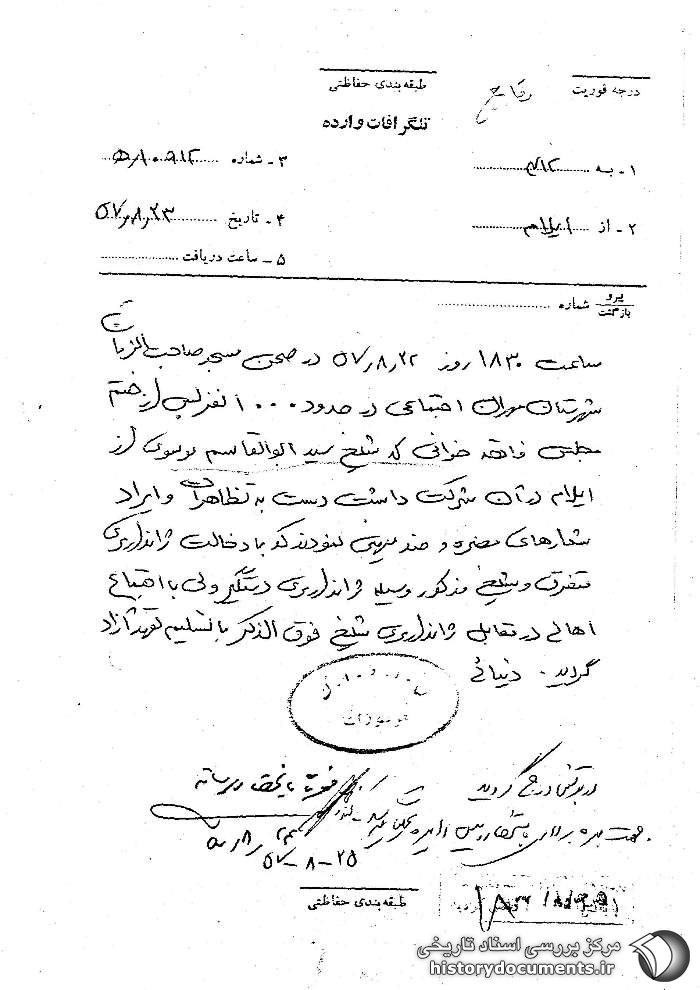 درجه فوریت
طبقه‌بندی حفاظتی
تلگرافات وارده
۱ - به ۳۱۲
۳ - شماره
۲ - از ایلام
۴ - تاریخ ۵۷٫۸٫۲۳
۵ - ساعت دریافت
پیرو
بازگشت
شماره
ساعت ۱۸۳۰ روز ۵۷٫۸٫۲۲ در صحن مسجد صاحب الزمان
شهرستان مهران اجتماعی در حدود ۱۰۰۰ نفر پس از ختم
مجلس فاتحه خوانی که شیخ سید ابوالقاسم موسوی از
ایلام در آن شرکت داشت دست به تظاهرات و ایراد
شعارهای مضره و ضد میهنی نمودند که با دخالت ژاندارمری
متفرق و شیخ مذکور وسیله ژاندارمری دستگیر ولی با اجتماع
اهالی در مقابل ژاندارمری شیخ فوق الذکر با تسلیم تعهد آزاد
گردید. دنیائی
در بولتن درج گردید
۵۷-۸-۲۵
طبقه‌بندی حفاظتی
مرکز بررسی اسناد تاریخی
historydocuments.ir